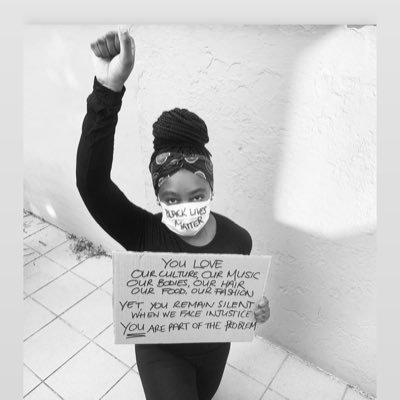 BLACK LIVES
MATTER
YOU LOVE
OUR CULTURE, OUR MUSIC
OUR BODIES, OUR HAIR
OUR FOOD, OUR FASHION
YET, YOU REMAIN SILENT
WHEN WE FACE INJUSTICE
YOU ARE PART OF THE PROBLEM